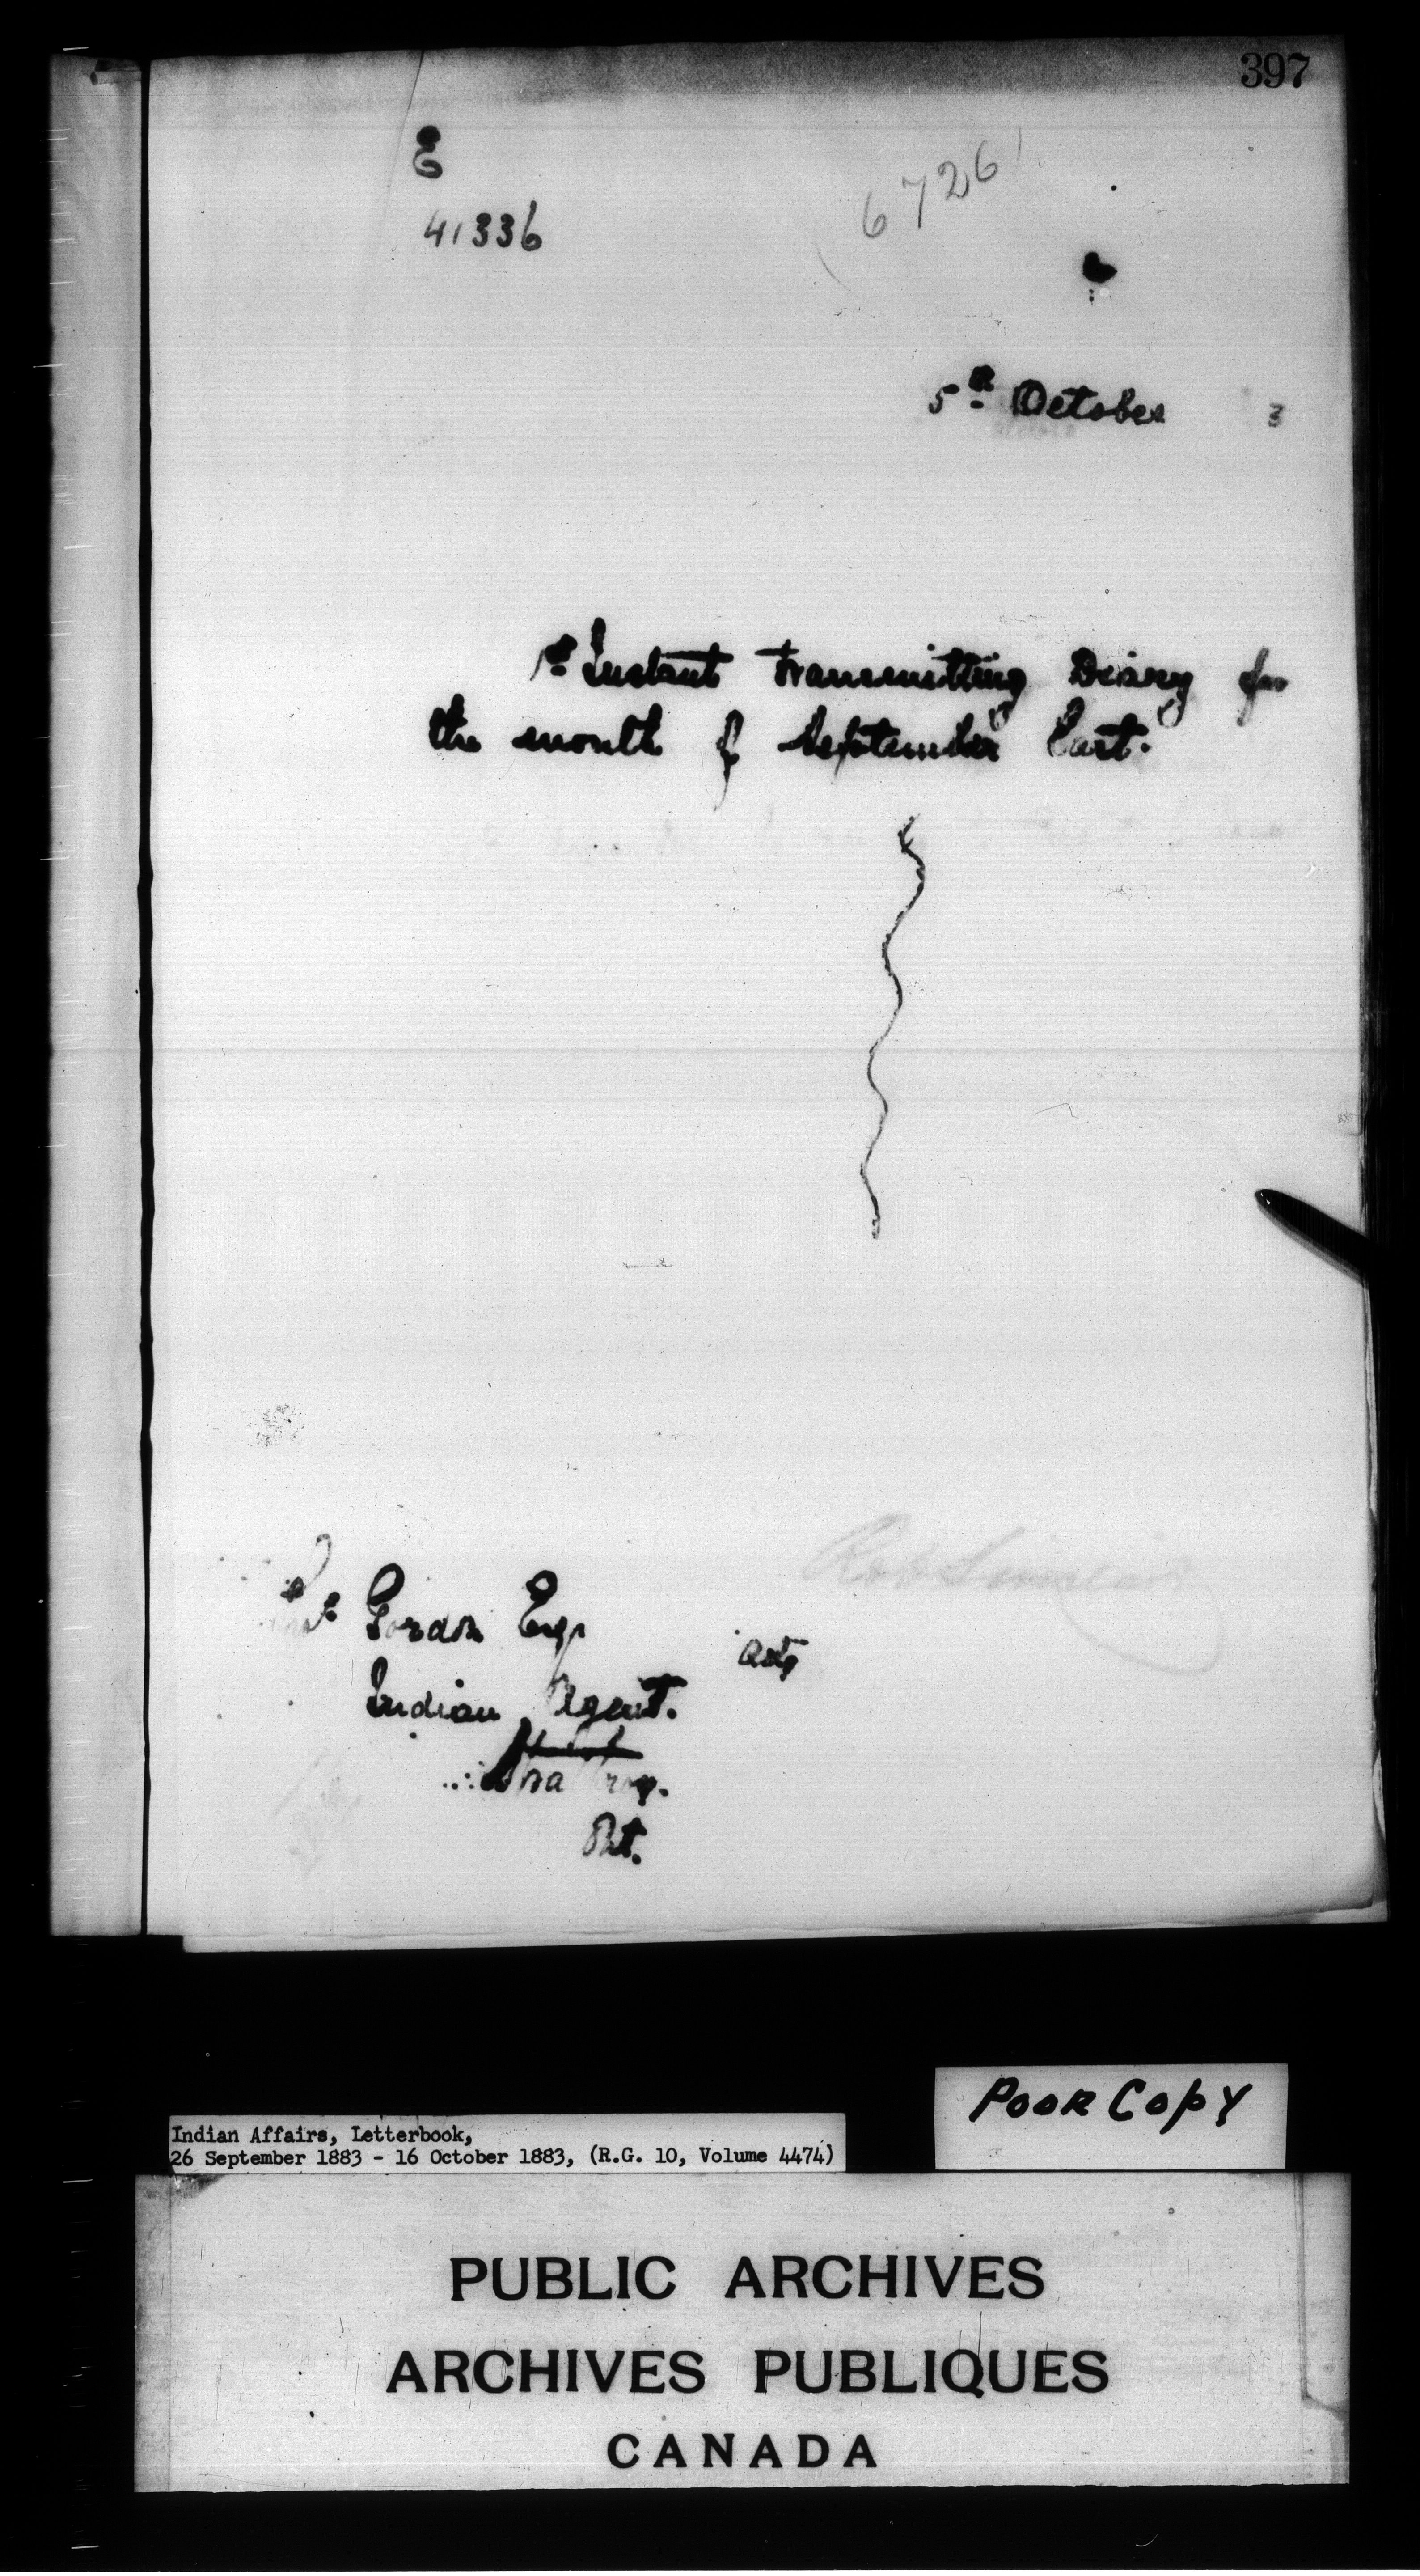 397
E
41336
6726
5th October 3
1st Instant transmitting Diary for
the month of September last.
Gordon Esqr
Rob Sinclair
Actg
Indian Agent.
Strathroy.
Ont.
Poor Copy
Indian Affairs, Letterbook,
26 September 1883 - 16 October 1883, (R.G. 10, Volume 4474)
PUBLIC ARCHIVES
ARCHIVES PUBLIQUES
CANADA